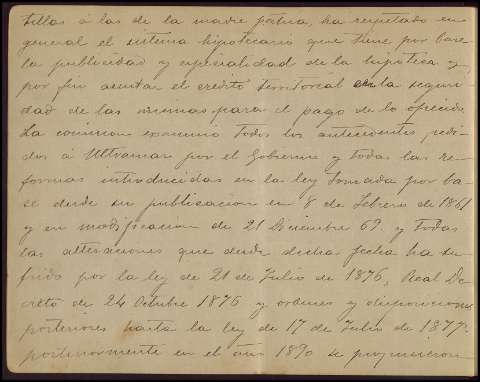 tillas á las de la madre patria, ha respetado en
general el sistema hipotecario que tiene por base
la publicidad y especialidad de la hipoteca y
por fin asentar el crédito territorial en la seguri
dad de las mismas para el pago de lo ofrecido.
La comision examinó todos los antecedentes pedi-
dos á Ultramar por el Gobierno y todas las re-
formas introducidas en la ley tomada por ba-
se desde su publicacion en 8 de Febrero de 1861
y en modificacion de 21 Diciembre 69 y todas
las alteraciones que desde dicha fecha ha su-
frido por la ley de 21 de Julio de 1876, Real De
creto de 24 Octubre 1876 y ordenes y disposiciones
posteriores hasta la ley de 17 de Julio de 1877.
posteriormente en el año 1890 se propusieron